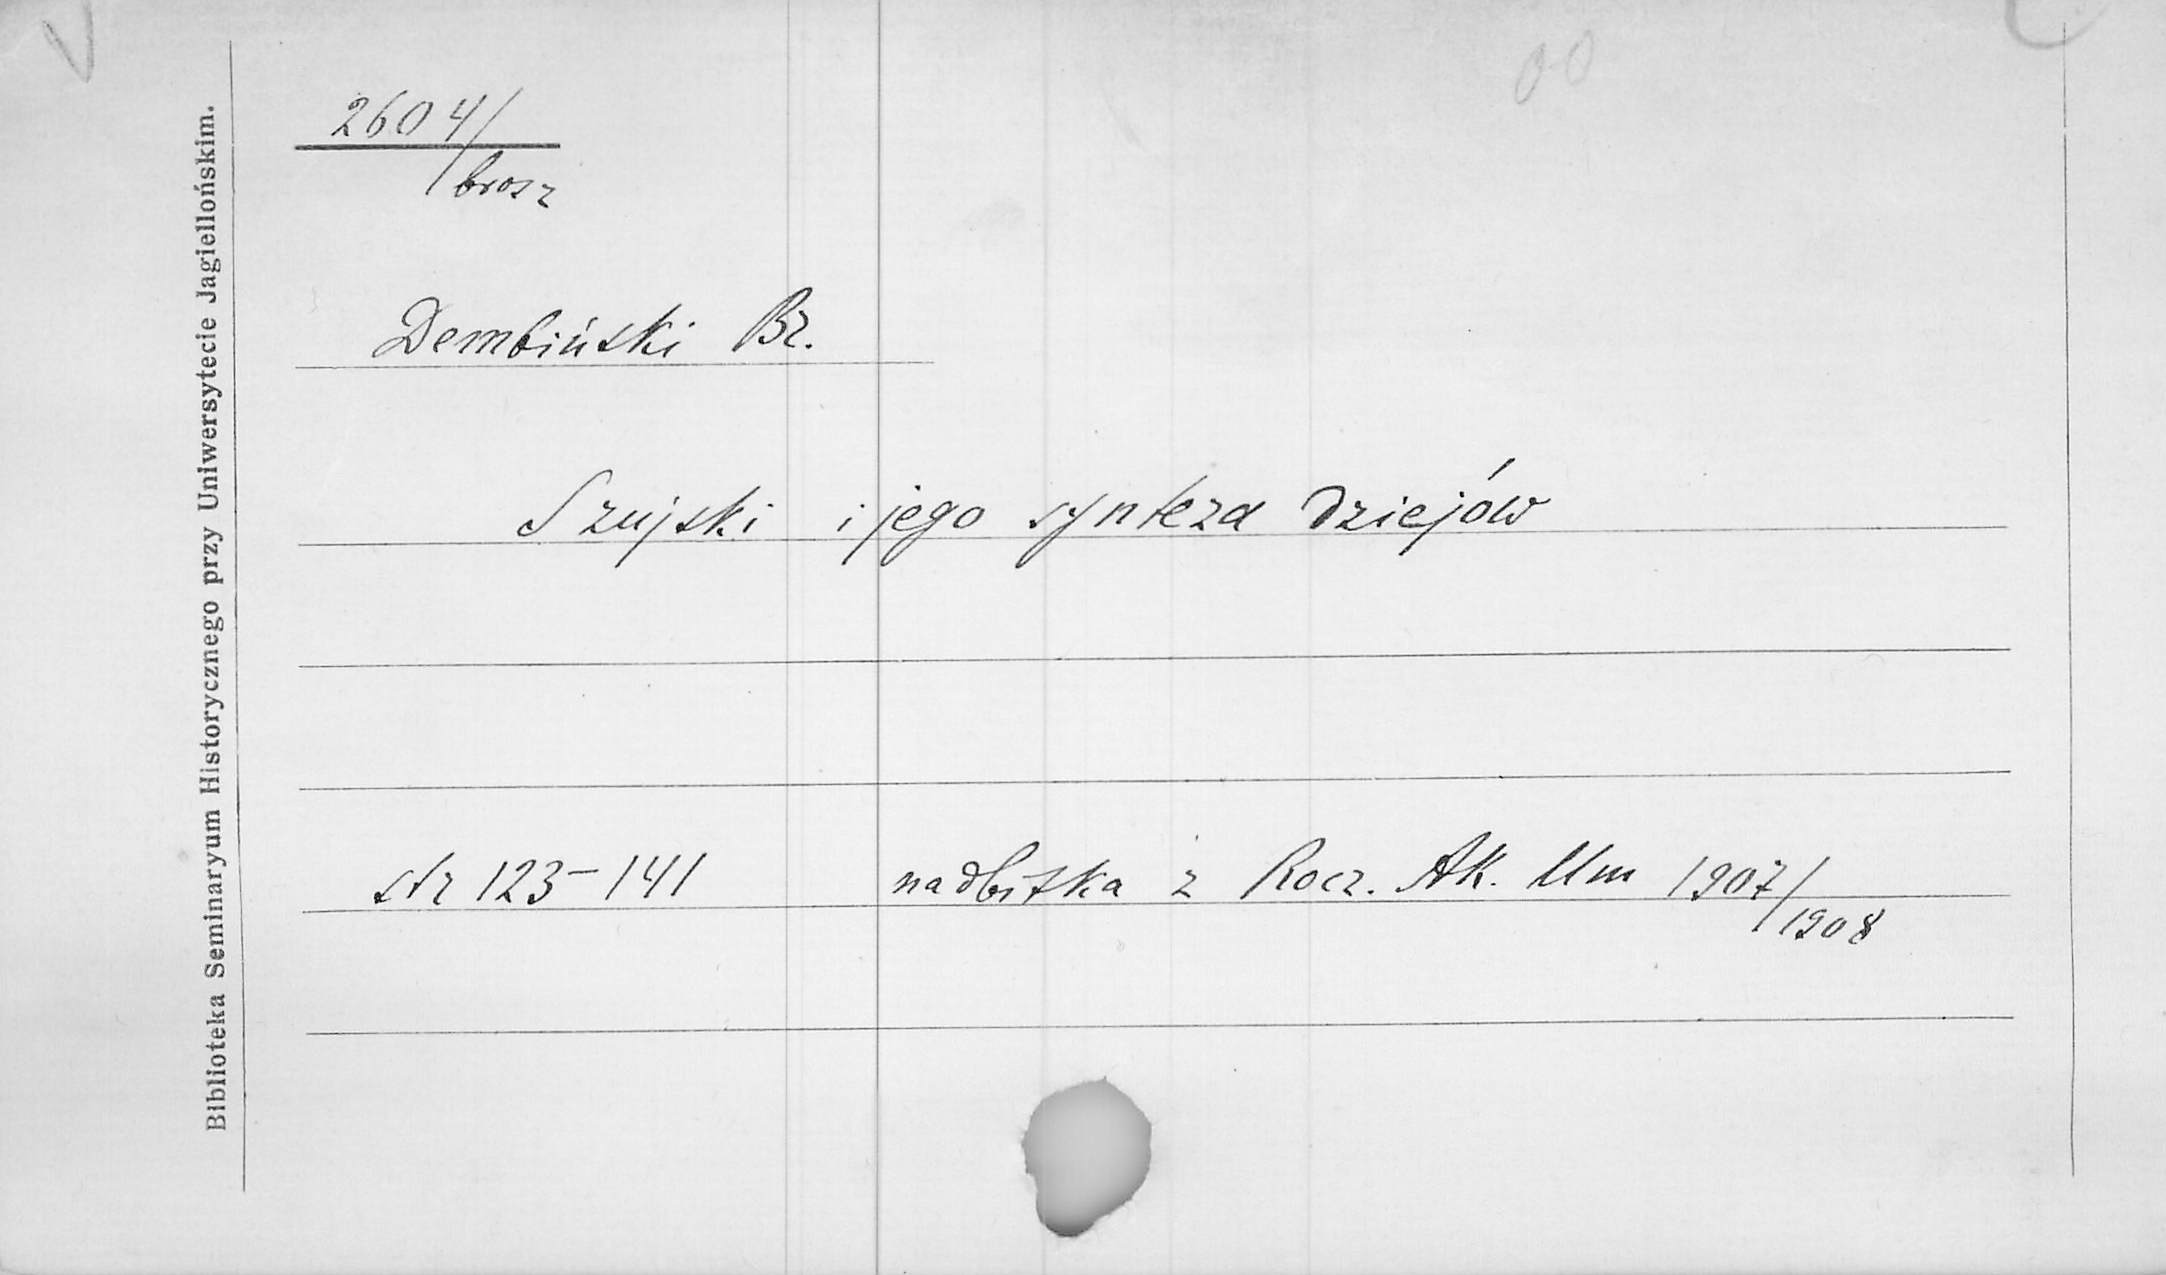 Biblioteka Seminaryum Historycznego przy Uniwersytecie Jagiellońskim.
2604/
brosz
Dembiński Br.
Szujski i jego synteza dziejów
str 123-141 nadbitka z Rocz. Ak. Um 1907/
1908